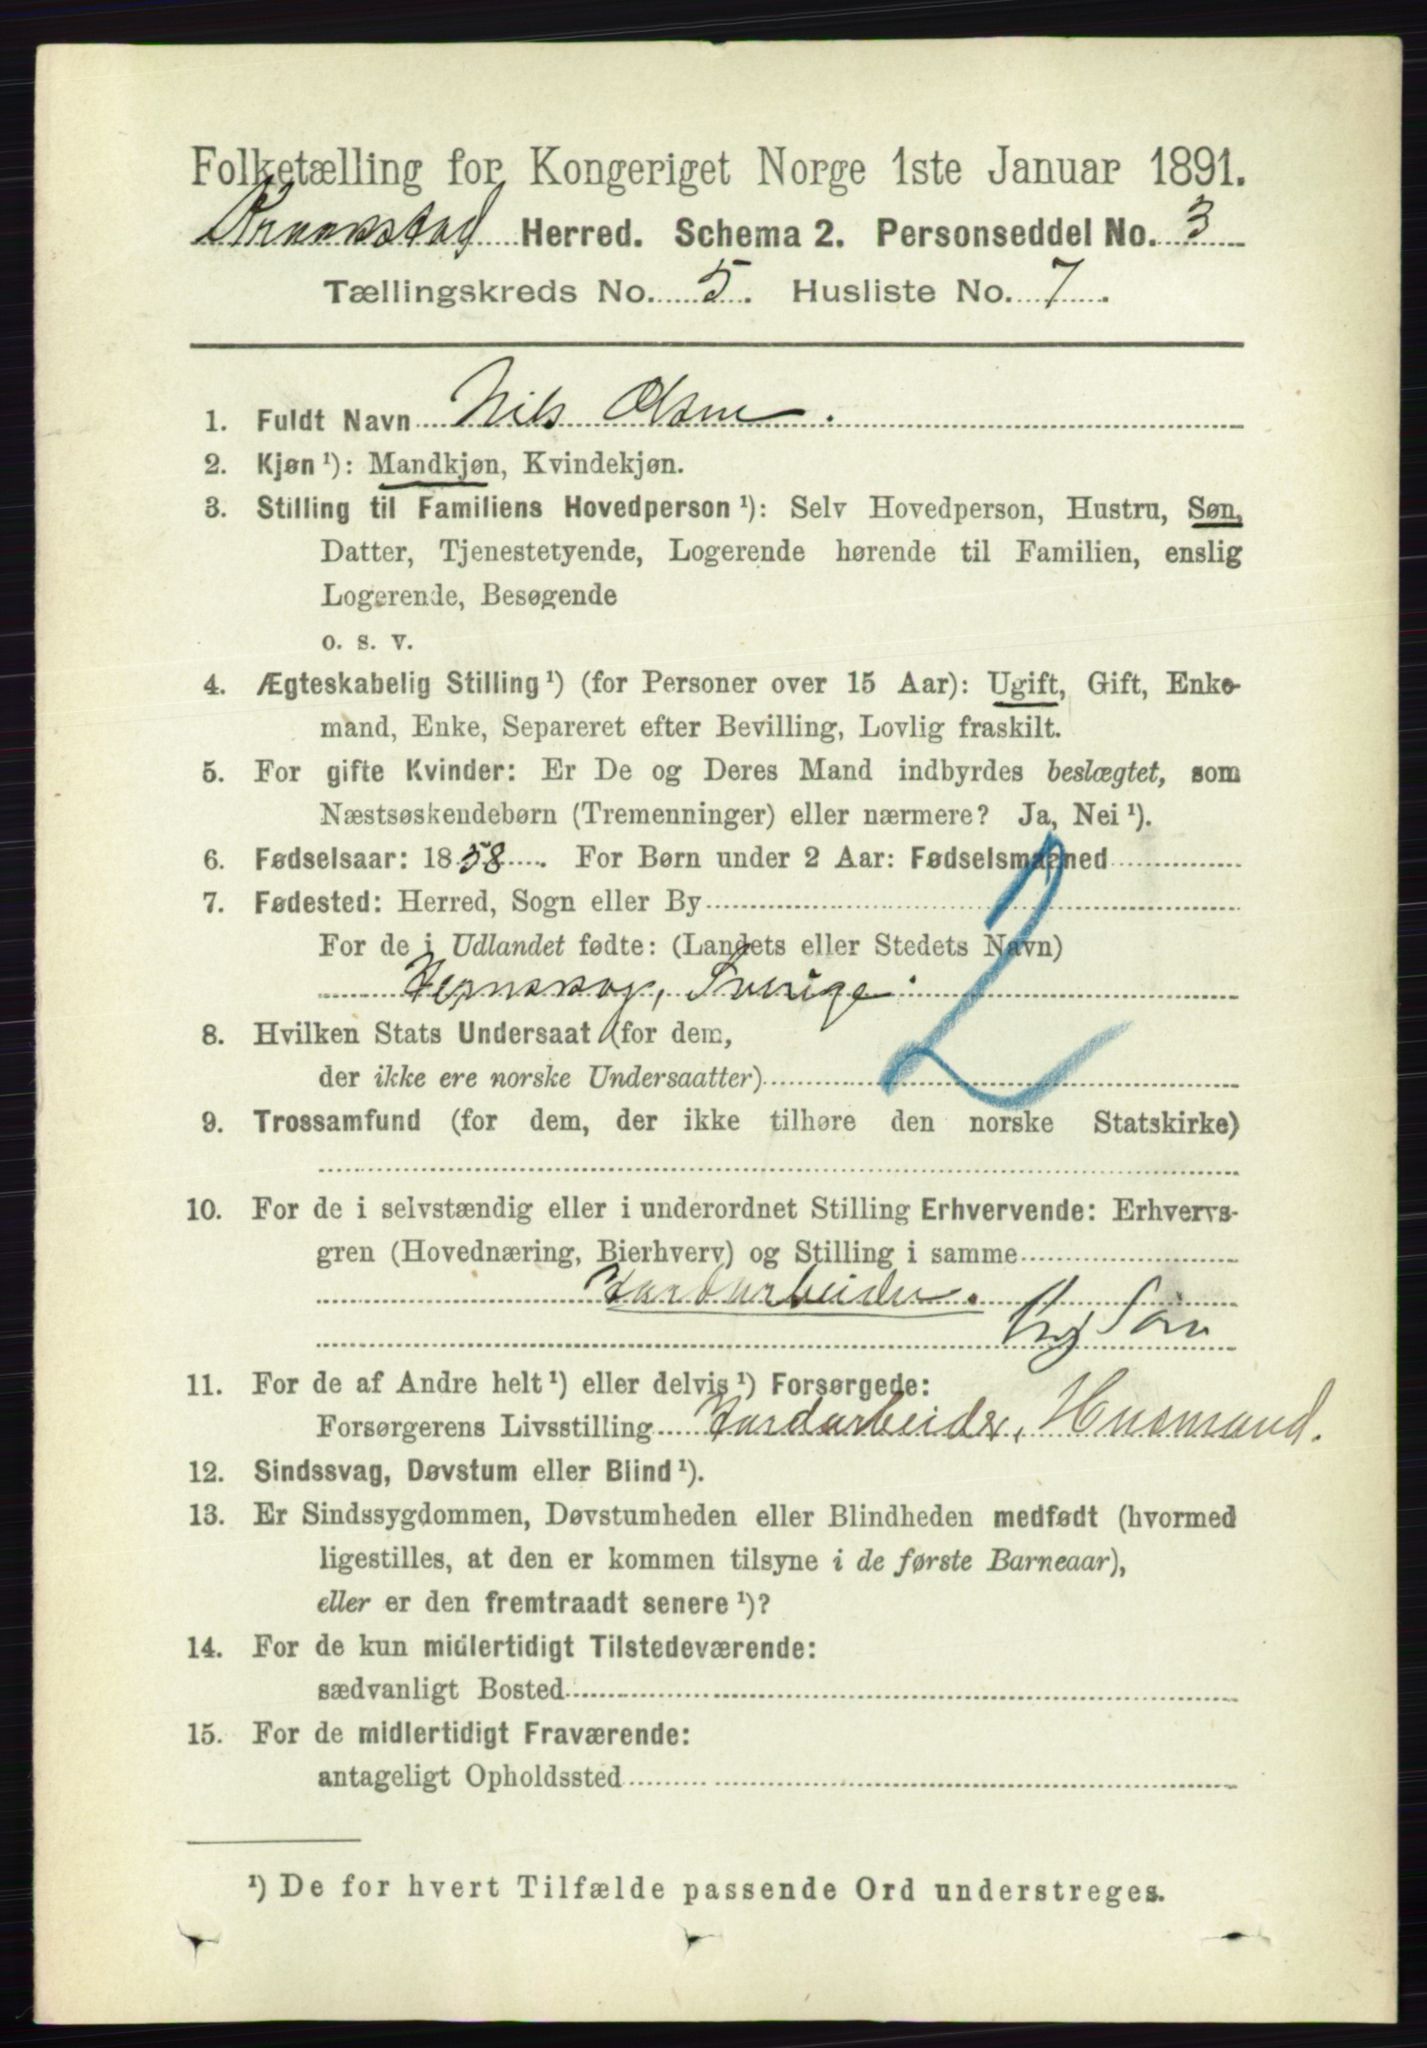 Folketælling for Kongeriget Norge 1ste Januar 1891.
Herred. Schema 2. Personseddel No. 3
Tællingskreds No. 5. Husliste No. 7.
1. Fuldt Navn Nils Olsen.
2. Kjøn ¹): Mandkjøn, Kvindekjøn.
3. Stilling til Familiens Hovedperson ¹): Selv Hovedperson, Hustru, Søn,
Datter, Tjenestetyende, Logerende hørende til Familien, enslig
Logerende, Besøgende
o. s. v.
4. Ægteskabelig Stilling ¹) (for Personer over 15 Aar): Ugift, Gift, Enke-
mand, Enke, Separeret efter Bevilling, Lovlig fraskilt.
5. For gifte Kvinder: Er De og Deres Mand indbyrdes beslægtet, som
Næstsøskendebørn (Tremenninger) eller nærmere? Ja, Nei ¹).
6. Fødselsaar: 1858. For Børn under 2 Aar: Fødselsmaaned
7. Fødested: Herred, Sogn eller By
For de i Udlandet fødte: (Landets eller Stedets Navn)
Sverige.
2
8. Hvilken Stats Undersaat (for dem,
der ikke ere norske Undersaatter)
9. Trossamfund (for dem, der ikke tilhøre den norske Statskirke)
10. For de i selvstændig eller i underordnet Stilling Erhvervende: Erhvervs-
gren (Hovednæring, Bierhverv) og Stilling i samme
Jordarbeider.
Søn
11. For de af Andre helt ¹) eller delvis ¹) Forsørgede:
Forsørgerens Livsstilling Jordarbeider, Husmand.
12. Sindssvag, Døvstum eller Blind ¹).
13. Er Sindssygdommen, Døvstumheden eller Blindheden medfødt (hvormed
ligestilles, at den er kommen tilsyne i de første Barneaar),
eller er den fremtraadt senere ¹)?
14. For de kun midlertidigt Tilstedeværende:
sædvanligt Bosted
15. For de midlertidigt Fraværende:
antageligt Opholdssted
¹) De for hvert Tilfælde passende Ord understreges.